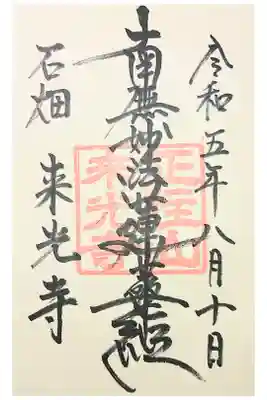 令和五年八月十日
南無妙法蓮華経
石畑 来光寺
来光寺